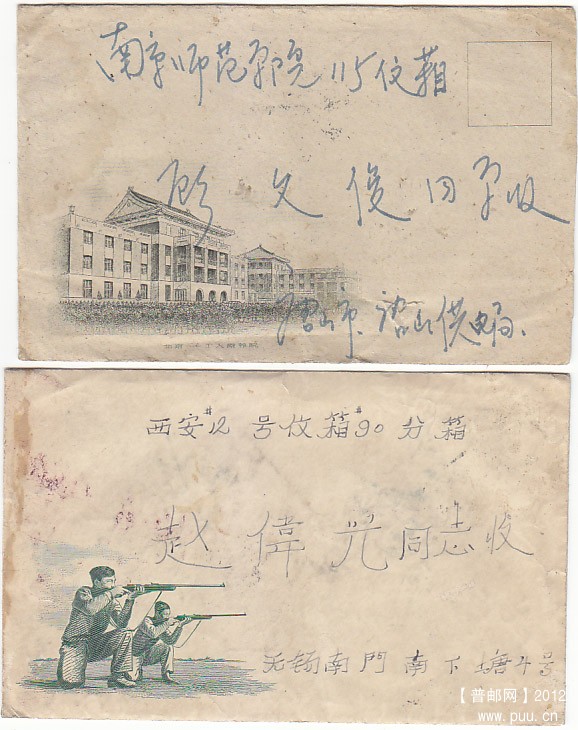 南京师范学院115信箱
顾文俊同学收
唐山市、唐山供电局、
西安#12号信箱#90分箱
赵偉光同志收
无锡南門南下塘4号
【普邮网】2012
www.puu.cn